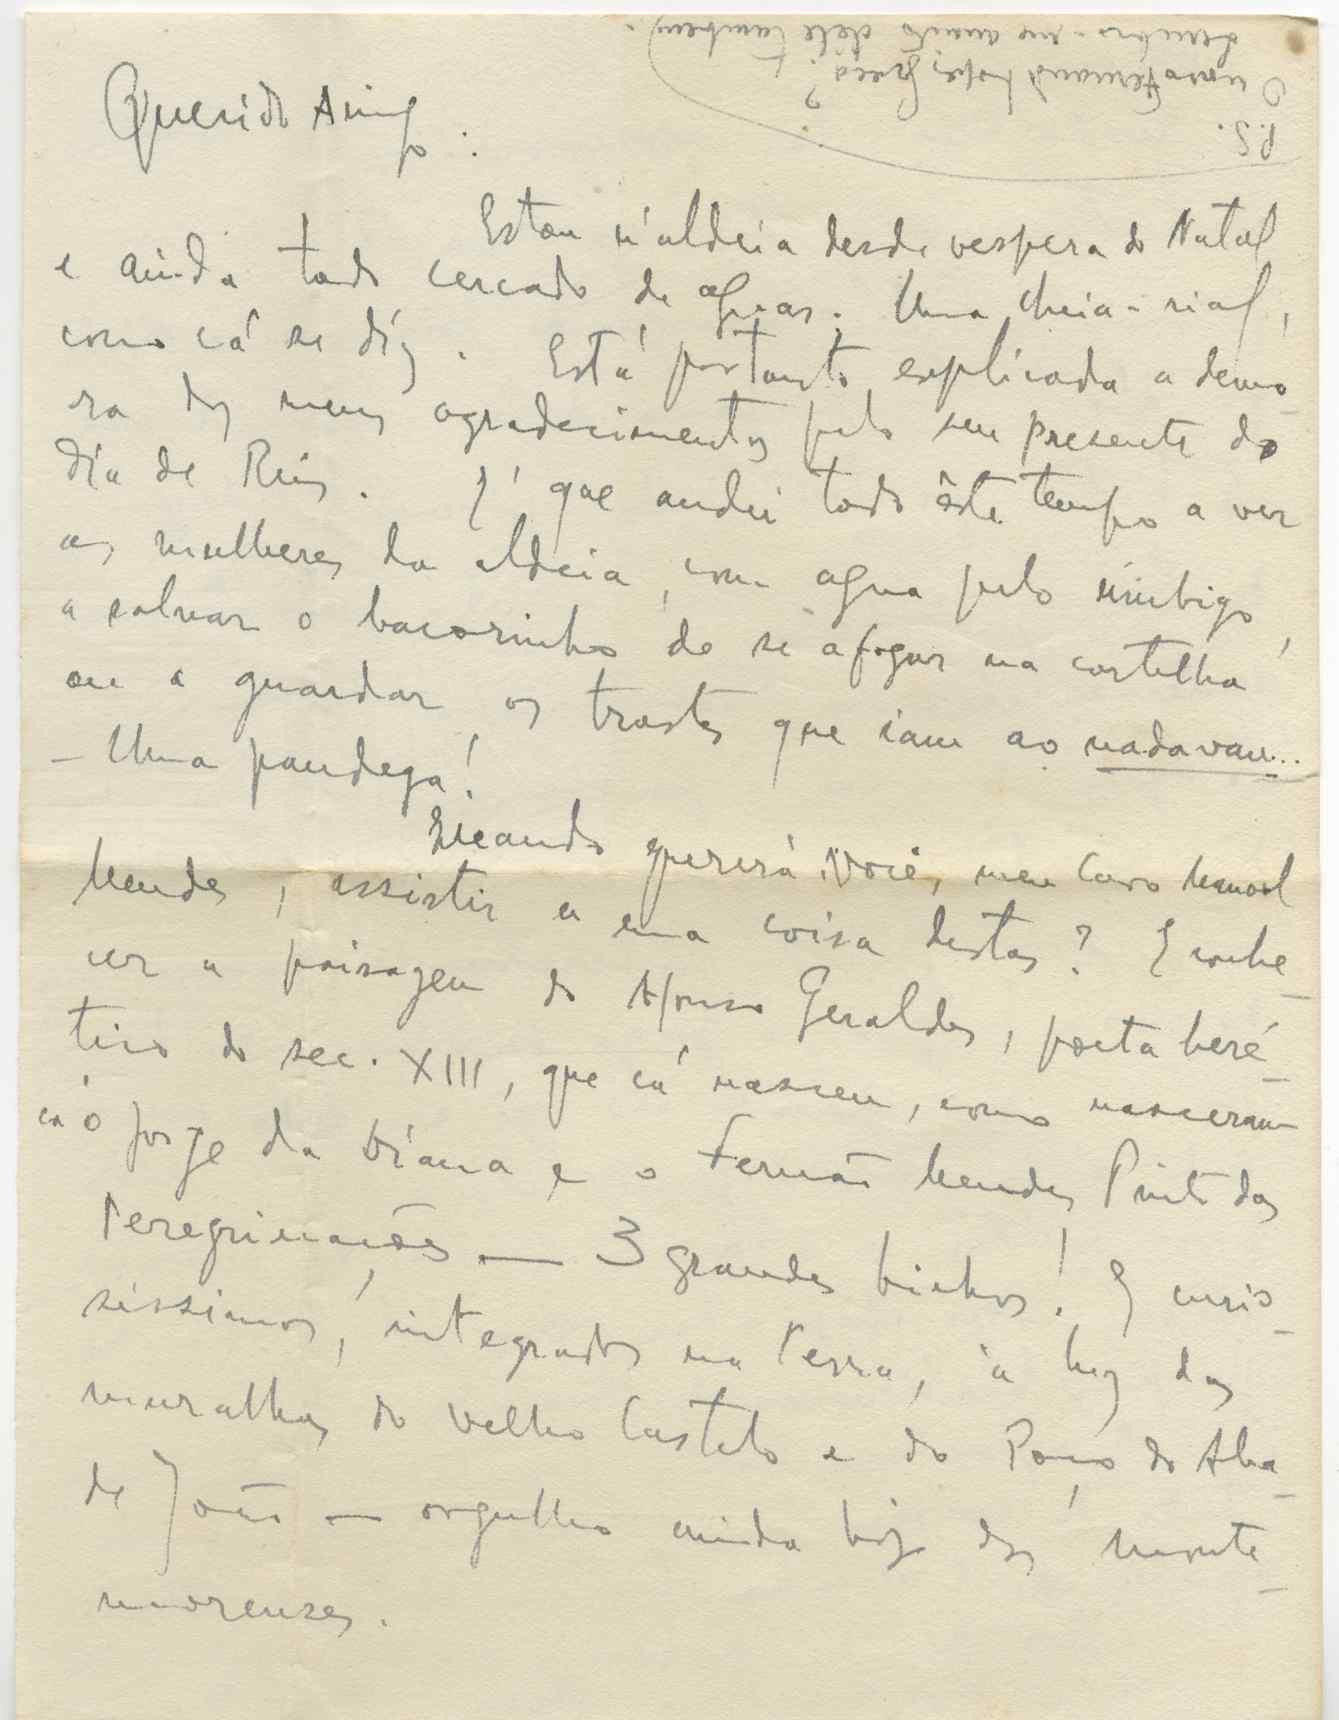 Querido Amigo:
Estou n'aldeia desde vespera do Natal
e ainda todo cercado de aguas. Uma cheia-rial,
como cá se díz. Está portanto explicada a demo-
ra dos meus agradecimentos pelo seu presente do
Dia de Reis. É que andei todo êste tempo a ver
as mulheres da aldeia, com agua pelo úmbigo,
a salvar o bacorinho de se afogar na cortelha
ou a guardar os trastes que iam ao nadavau...
- Uma pandega!
Quando quererá Você, meu Caro Manoel
Mendes, assistir a uma coisa destas? E conhe-
cer a paisagem do Afonso Geraldes, poeta heré-
tico do sec. XIII, que cá nasceu, como nasceram
cá o Jorge da Diana e o Fernão Mendes Pinto das
Peregrinações — 3 grandes bichos! E curio-
síssimos, integrados na terra, à luz das
muralhas do velho Castelo e do Poço do Aba-
de João — orgulho ainda hoje dos monte-
morenses.
P.S.
O nosso Fernando Lopes Graça?
Lembro-me muito dele tambem.